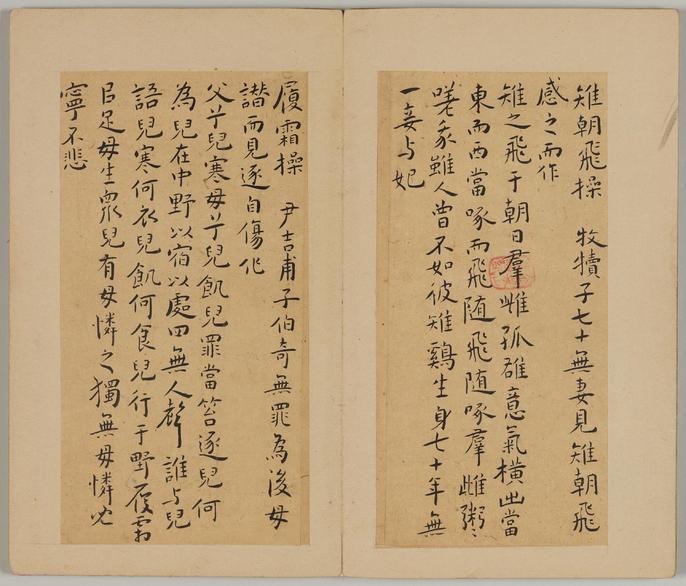 雉朝飛操　牧犢子七十無妻見雉朝飛
感之而作
雉之飛于朝日羣雌孤雄意氣橫出當
東而西當啄而飛随飛随啄羣雌粥〻
嗟我雖人曾不如彼雉鷄生身七十年無
一妾与妃
履霜操　尹吉甫子伯奇無罪為後母
譖而見逐自傷作
父兮兒寒母兮兒飢兒罪當笞逐兒何
為兒在中野以宿以處四無人聲誰与兒
語兒寒何衣兒飢何食兒行于野履霜
以足母生眾兒有母憐之獨無母憐兒
寧不悲